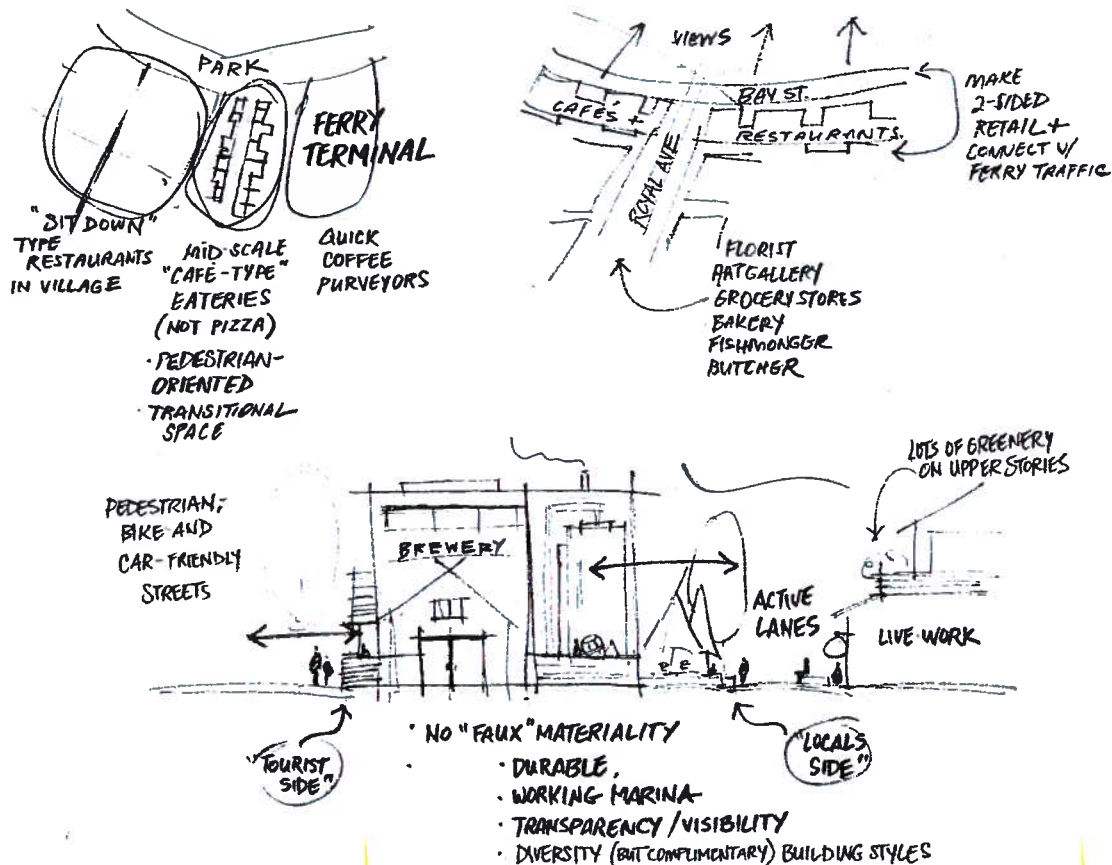 PARK
FERRY
TERMINAL
"SIT DOWN"
TYPE
RESTAURANTS
IN VILLAGE
MID-SCALE
"CAFÉ-TYPE"
EATERIES
(NOT PIZZA)
• PEDESTRIAN-
ORIENTED
• TRANSITIONAL
SPACE
QUICK
COFFEE
PURVEYORS
VIEWS
BAY ST.
CAFÉS +
RESTAURANTS.
ROYAL AVE
MAKE
2-SIDED
RETAIL +
CONNECT W/
FERRY TRAFFIC
FLORIST
ART GALLERY
GROCERY STORES
BAKERY
FISHMONGER
BUTCHER
PEDESTRIAN,
BIKE AND
CAR-FRIENDLY
STREETS
BREWERY
ACTIVE
LANES
LOTS OF GREENERY
ON UPPER STORIES
LIVE-WORK
"TOURIST
SIDE"
"LOCALS
SIDE"
• NO "FAUX" MATERIALITY
• DURABLE,
• WORKING MARINA
• TRANSPARENCY / VISIBILITY
• DIVERSITY (BUT COMPLIMENTARY) BUILDING STYLES